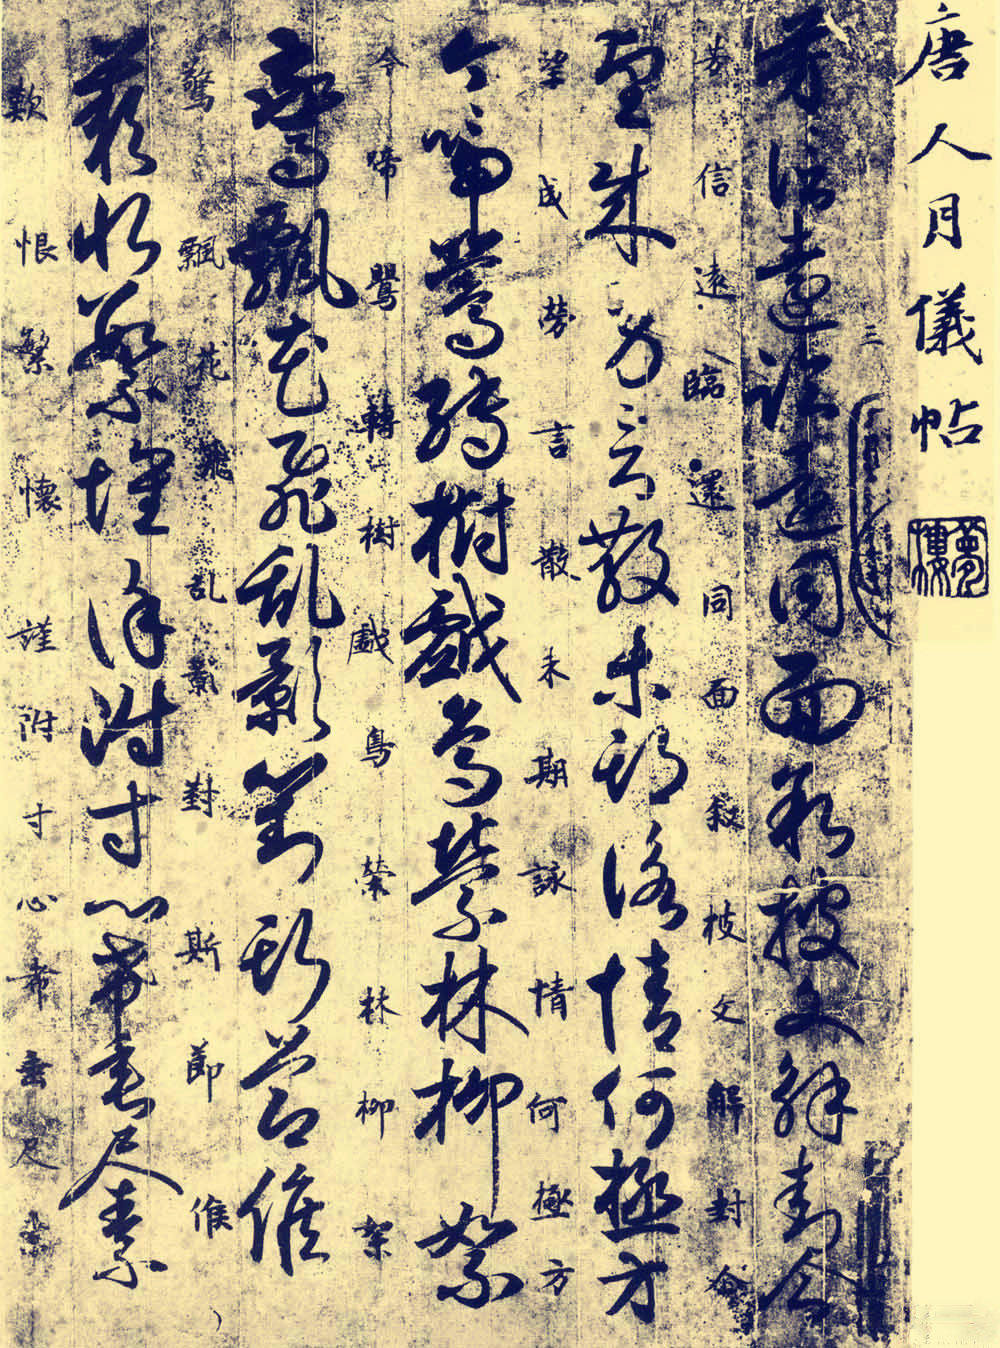 唐人月儀帖
夢樓
三
芳信遠臨還同面敘披文解封企
芳信遠臨還同面叙披文解封企
望成勞言散未期詠情何極方
望成勞言散未期詠情何極方
今啼鶯轉樹戲鳥縈林柳絮
今啼鶯轉樹戲鳥縈林柳絮
驚飄花飛乱影對斯節候
驚飄花飛乱影對斯節候
歎恨繁懷謹附寸心希垂尺素
歎恨繁懷謹附寸心希垂尺素